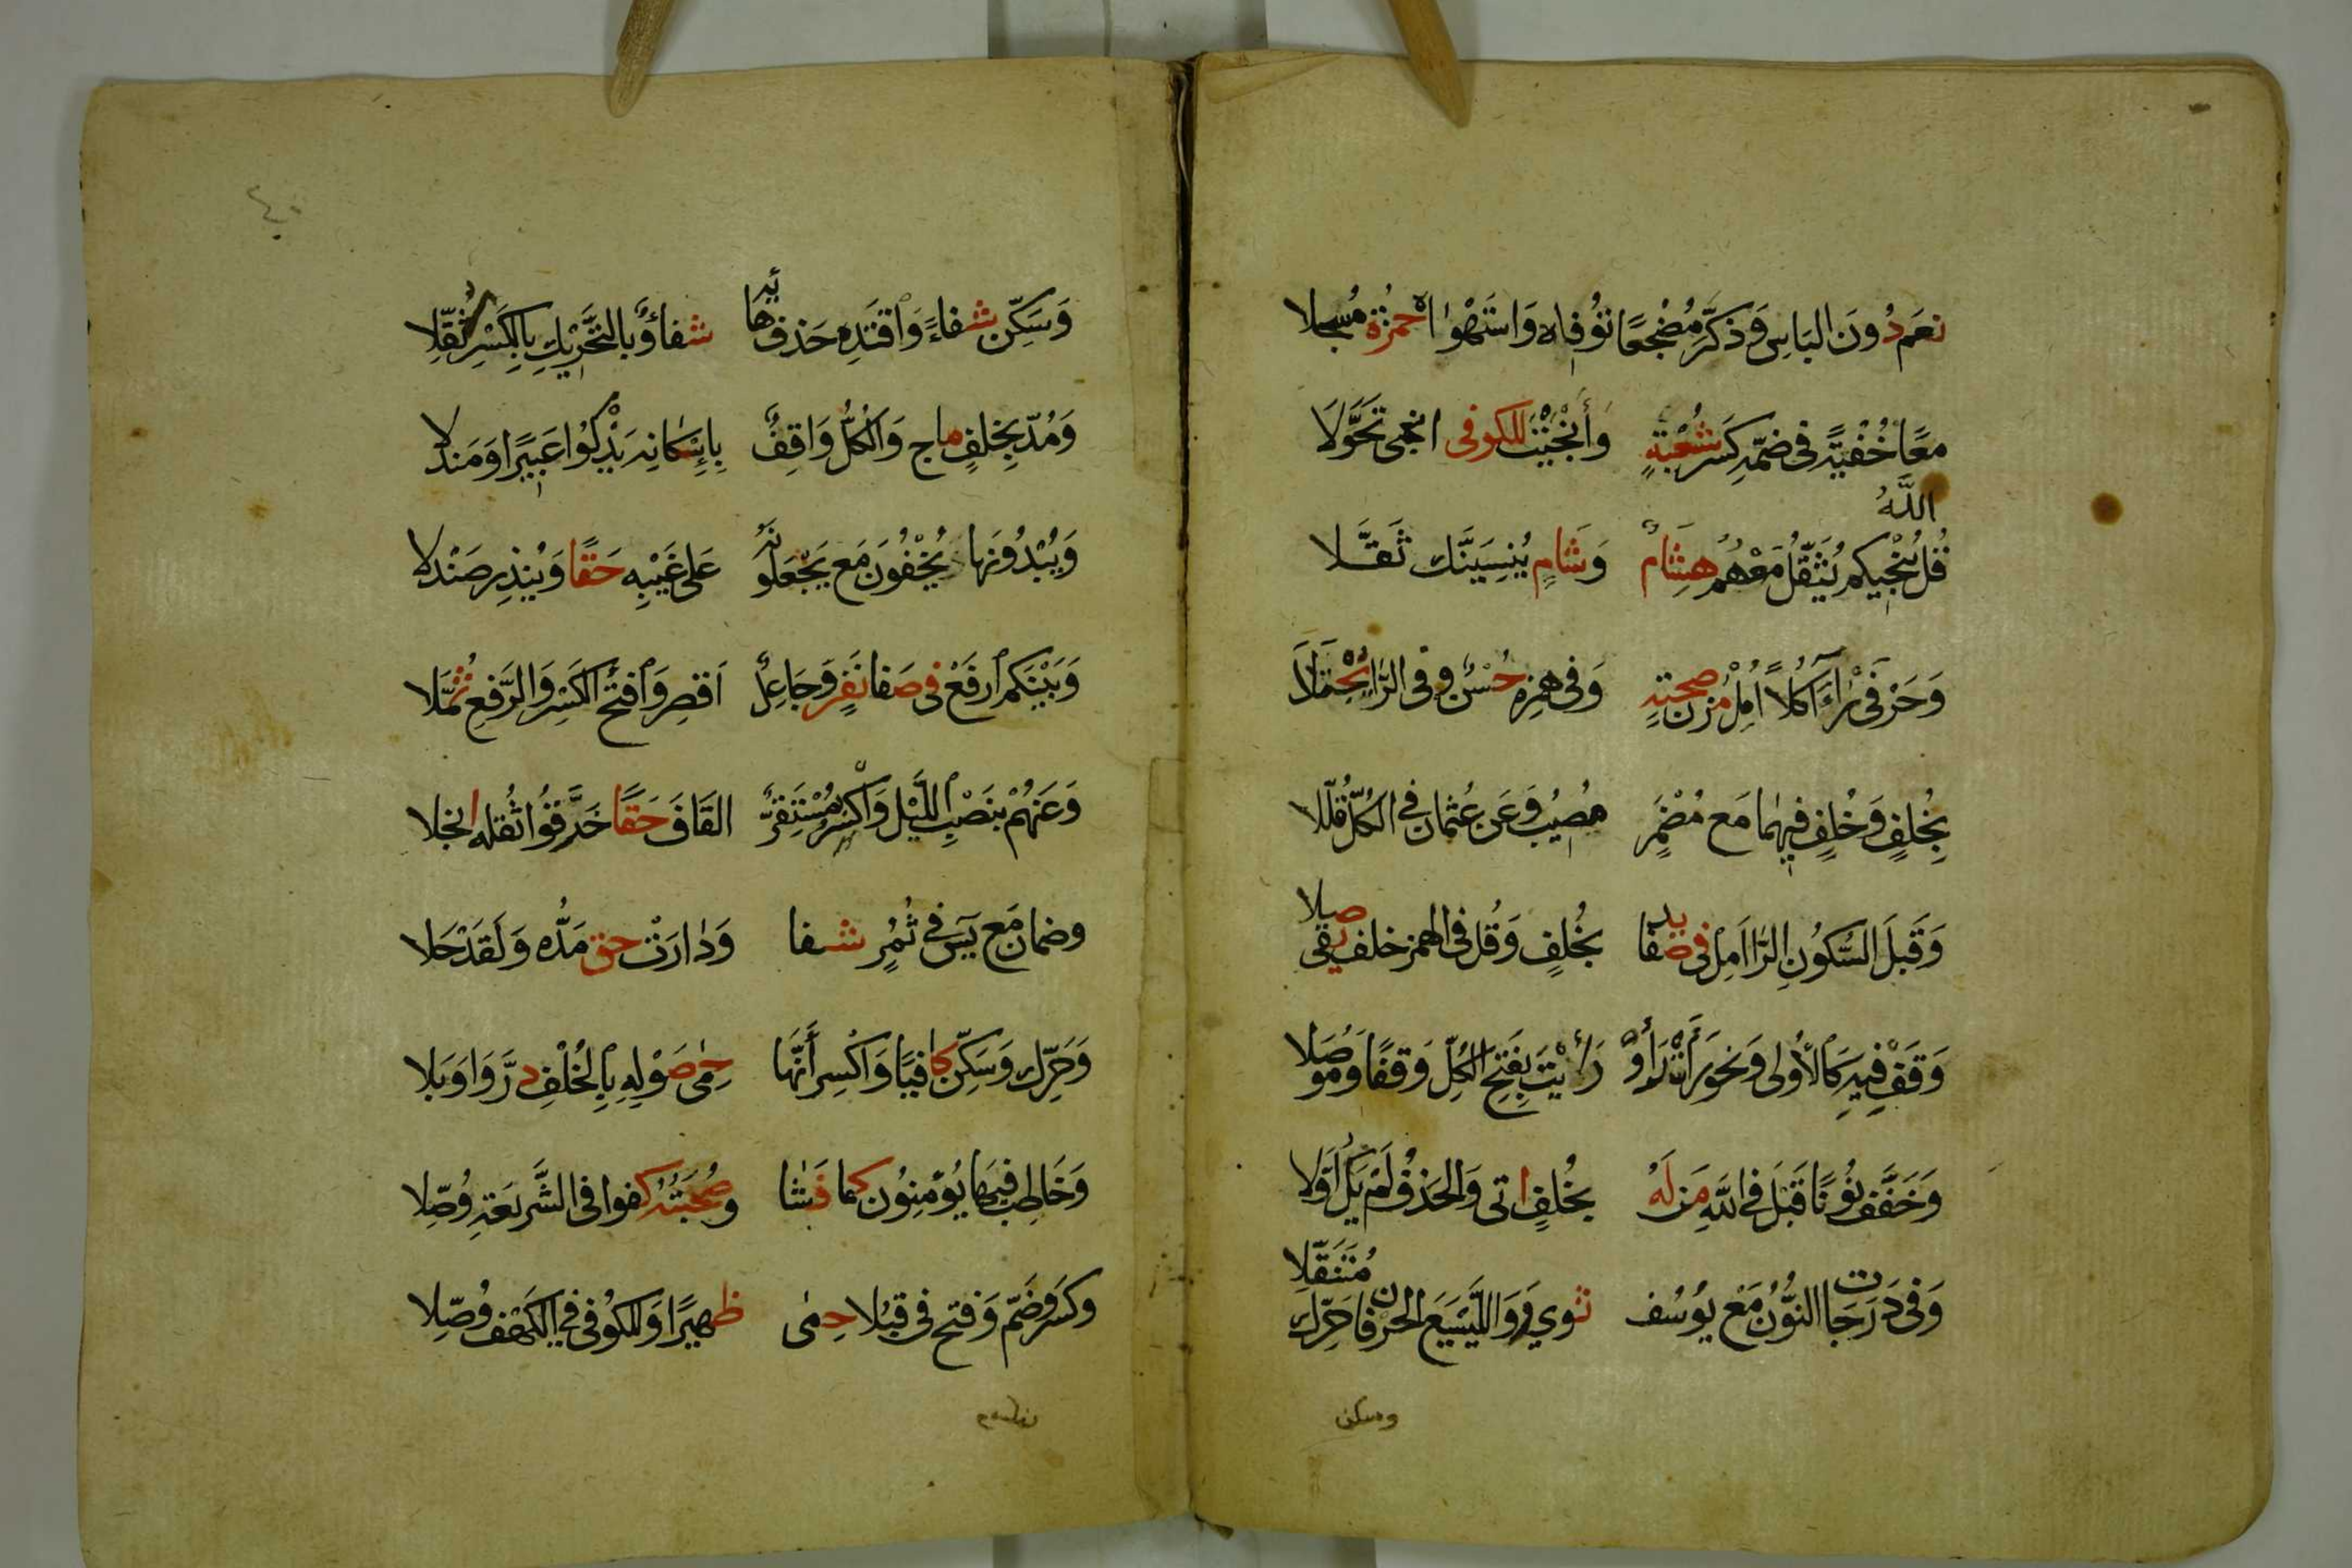 نَعَم دُونَ الْبَاسٍ وَذَكَّرَ مُضْجَعًا تَوَفَّاهُ وَاسْتَهْوَاهُ حَمْزَةُ مُنْسِلا
مَعًا خُفْيَةً فِي ضَمِّهِ كَسْرُ شُعْبَةٍ وَأَنْجَيْتَ لِلْكُوفِيِّ أَنْجَى تَحَوَّلَا
قُلِ اللَّهُ يُنْجِيكُمْ يُثَقِّلُ مَعْهُمُ هِشَامٌ وَشَامٍ يُنْسِيَنَّكَ ثَقَّلَا
وَحَرْفَيْ رَأَى كُلًّا أَمِلْ مُزْنَ صُحْبَةٍ وَفِي هَمْزِهِ حُسْنٌ وَفِي الرَّا يُجْتَلَا
بِخُلْفٍ وَخُلْفٍ فِيهِمَا مَعَ مُضْمَرٍ مُصِيبٌ وَعَنْ عُثْمَانَ فِي الْكُلِّ قُلِّلَا
وَقَبْلَ السُّكُونِ الرَّا أَمِلْ فِي صَفَا يَدٍ بِخُلْفٍ وَقُلْ فِي الْهَمْزِ خُلْفٌ يَقِي صِلَا
وَقِفْ فِيهِ كَالْأُولَى وَنَحْوُ رَأَتْ رَأَوْا رَأَيْتَ بِفَتْحِ الْكُلِّ وَقْفًا وَمَوْصِلَا
وَخَفَّفَ نُونًا قَبْلَ فِي اللَّهِ مَنْ لَهُ بِخُلْفٍ أَتَى وَالْحَذْفُ لَمْ يَكُ أَوَّلَا
وَفِي دَرَجَاتِ النُّونُ مَعْ يُوسُفٍ ثَوَى وَوَاللَّيْسَعَ الْحَرْفَانِ حَرِّكْ مُثَقِّلَا
وسكن
٤٠
وَسَكِّنْ شِفَاءً وَاقْتَدِهْ حَذْفُ هَائِهِ شِفَاءٌ وَبِالتَّحْرِيكِ بِالْكَسْرِ كُفِّلَا
وَمُدَّ بِخُلْفٍ مَاجَ وَالْكُلُّ وَاقِفٌ بِإِسْكَانِهِ يَذْكُو عَبِيرًا وَمَنْدَلَا
وَيُبْدُونَهَا يُخْفُونَ مَعْ يَجْعَلُونَهُ عَلَى غَيْبِهِ حَقًّا وَيُنْذِرَ صَنْدَلَا
وَبَيْنَكُمُ ارْفَعْ فِي صَفَا نَفَرٍ وَجَاعِلُ اقْصُرْ وَفَتْحُ الْكَسْرِ وَالرَّفْعِ ثُمِّلَا
وَعَنْهُمْ بِنَصْبِ اللَّيْلِ وَاكْسِرْ بِمُسْتَقَرٌّ الْقَافَ حَقًّا خَرَّقُوا ثِقْلُهُ انْجَلَا
وَضَمَّانِ مَعْ يٰسٓ فِي ثُمُرٍ شَفَا وَدَارَسْتَ حَقٌّ مَدُّهُ وَلَقَدْ حَلَا
وَحَرِّكْ وَسَكِّنْ كَافِيًا وَاكْسِرْ أَنَّهَا حِمَى صَوْبِهِ بِالْخُلْفِ دَرَّ وَأَوْبَلَا
وَخَاطَبَ فِيهَا يُؤْمِنُونَ كَمَا فَشَا وَصُحْبَةُ كُفْوٍ فِي الشَّرِيعَةِ وُصِّلَا
وَكَسْرٌ وَضَمٌّ وَفَتْحٌ فِي قُبُلًا حِمَى ظَهِيرًا وَلِلْكُوفِيِّ فِي الْكَهْفِ وُصِّلَا